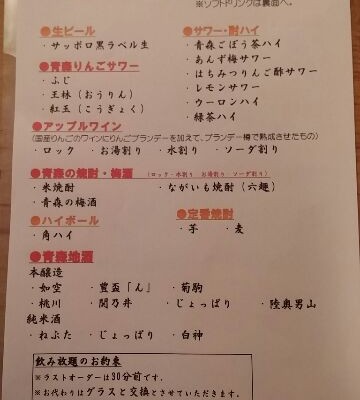 ※ソフトドリンクは裏面へ。
●生ビール
・サッポロ黒ラベル生
●青森りんごサワー
・ふじ
・王林（おうりん）
・紅玉（こうぎょく）
●サワー・酎ハイ
・青森ごぼう茶ハイ
・あんず梅サワー
・はちみつりんご酢サワー
・レモンサワー
・ウーロンハイ
・緑茶ハイ
●アップルワイン
（国産りんごのワインにりんごブランデーを加えて、ブランデー樽で熟成させたもの）
・ロック ・お湯割り ・水割り ・ソーダ割り
●青森の焼酎・梅酒 （ロック・水割り お湯割り・ソーダ割り）
・米焼酎 ・ながいも焼酎（六趣）
・青森の梅酒
●ハイボール
・角ハイ
●定番焼酎
・芋 ・麦
●青森地酒
本醸造
・如空 ・豊盃「ん」 ・菊駒
・桃川 ・関乃井 ・じょっぱり ・陸奥男山
純米酒
・ねぶた ・じょっぱり ・白神
飲み放題のお約束
※ラストオーダーは30分前です。
※お代わりはグラスと交換とさせていただきます。